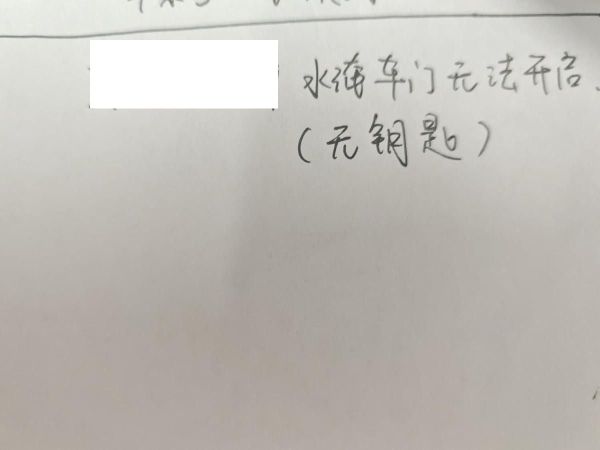 水淹车门无法开启、
(无钥匙)